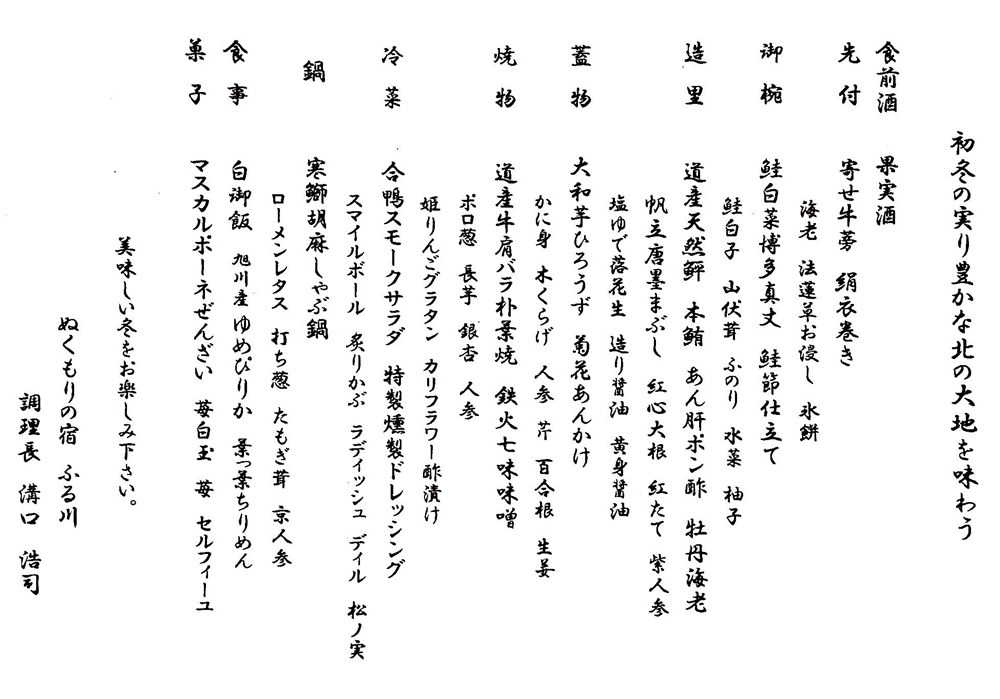 初冬の実り豊かな北の大地を味わう
食前酒 果実酒
先付 寄せ牛蒡 絹衣巻き
海老 法蓮草お浸し 氷餅
御椀 鮭白菜博多真丈 鮭節仕立て
鮭白子 山伏茸 ふのり 水菜 柚子
造里 道産天然鮃 本鮪 あん肝ポン酢 牡丹海老
帆立唐墨まぶし 紅心大根 紅たて 紫人参
塩ゆで落花生 造り醤油 黄身醤油
蓋物 大和芋ひろうず 菊花あんかけ
かに身 木くらげ 人参 芹 百合根 生姜
焼物 道産牛肩バラ朴葉焼 鉄火七味味噌
ポロ葱 長芋 銀杏 人参
姫りんごグラタン カリフラワー酢漬け
冷菜 合鴨スモークサラダ 特製燻製ドレッシング
スマイルボール 炙りかぶ ラディッシュ ディル 松ノ実
鍋 寒鰤胡麻しゃぶ鍋
ローメンレタス 打ち葱 たもぎ茸 京人参
食事 白御飯 旭川産ゆめぴりか 葉っ葉ちりめん
菓子 マスカルポーネぜんざい 苺白玉 苺 セルフィーユ
美味しい冬をお楽しみ下さい。
ぬくもりの宿 ふる川
調理長 溝口 浩司